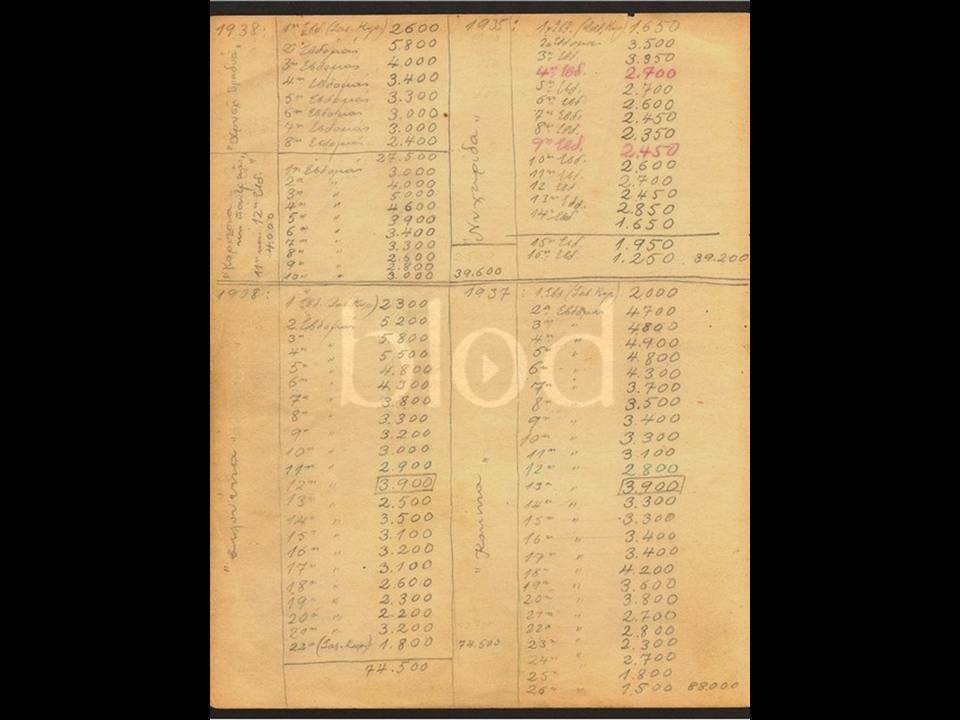 1938:
1η Εβδ. (Σαβ. Κυρ.) 2600
2α Εβδομάς 5.800
3η Εβδομάς 4.000
4η Εβδομάς 3.400
5η Εβδομάς 3.300
6η Εβδομάς 3.000
7η Εβδομάς 3.000
8η Εβδομάς 2.400
27.500
1η Εβδομάς 3.000
2α " 4.000
3η " 5.000
4η " 4600
5η " 3900
6η " 3.400
7η " 3.300
8η " 2.600
9η " 2.800
10η " 3.000
11η και 12η Εβδ.
4.000
39.600
1935:
1η Εβδ. (Σαβ. Κυρ) 1.650
2α Εβδομ. 3.500
3η Εβδ. 3.350
4η Εβδ. 2.700
5η Εβδ. 2.700
6η Εβδ. 2.600
7η Εβδ. 2.450
8η Εβδ. 2.350
9η Εβδ. 2.450
10η Εβδ. 2.600
11η Εβδ. 2.700
12 Εβδ. 2450
13η Εβδ. 2.850
14η Εβδ. 1.650
15η Εβδ. 1.950
16η Εβδ. 1.250 39.200
"Νυχτερίδα"
1938:
1 Εβδ. (Σαβ. Κυρ) 2300
2 Εβδομάς 5200
3η " 5.800
4η " 5.500
5η " 4.800
6η " 4.300
7η " 3.800
8η " 3.300
9η " 3.200
10η " 3.000
11η " 2.900
12η " 3.900
13η " 2.500
14η " 3.500
15η " 3.100
16η " 3.200
17η " 3.100
18η " 2.600
19η " 2.300
20η " 2.200
21η " 3.200
22α (Σαβ. Κυρ) 1.800 74.500
74.500
1937:
1 Εβδ. (Σαβ. Κυρ) 2000
2α Εβδομάς 4700
3η " 4800
4η " 4.900
5η " 4.800
6η " 4.300
7η " 3.700
8η " 3.500
9η " 3.400
10η " 3.300
11η " 3.100
12η " 2.800
13η " 3.900
14η " 3.300
15η " 3.300
16η " 3.400
17η " 3.400
18η " 4.200
19η " 3.600
20η " 3.800
21η " 2.700
22α " 2.800
23η " 2.300
24η " 2.700
25η " 1.800
26η " 1.500 88.000
blod